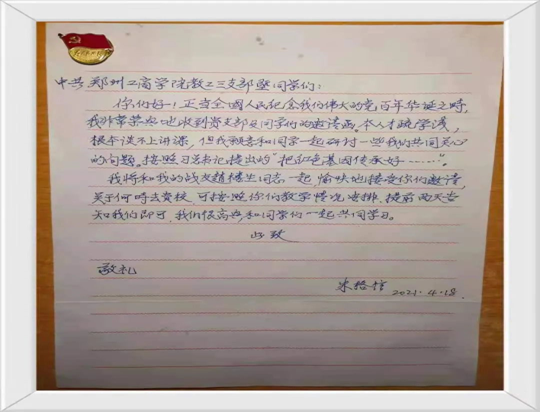 中共郑州工商学院教工三支部暨同学们:
你们好!正当全国人民纪念我们伟大的党百年华诞之时,
我非常荣幸地收到贵支部及同学们的邀请函。本人才疏学浅,
根本谈不上讲课,但我愿意和同学一起研讨一些"我们共同关心"
的问题。按照习总书记提出的"把红色基因传承好……"。
我将和我的战友赵楼生同志一起愉快地接受你们邀请,
关于何时去贵校,可按照你们教学情况安排,提前两天告
知我们即可,我们很高兴和同学们一起共同学习。
此致
敬礼
2021.4.18